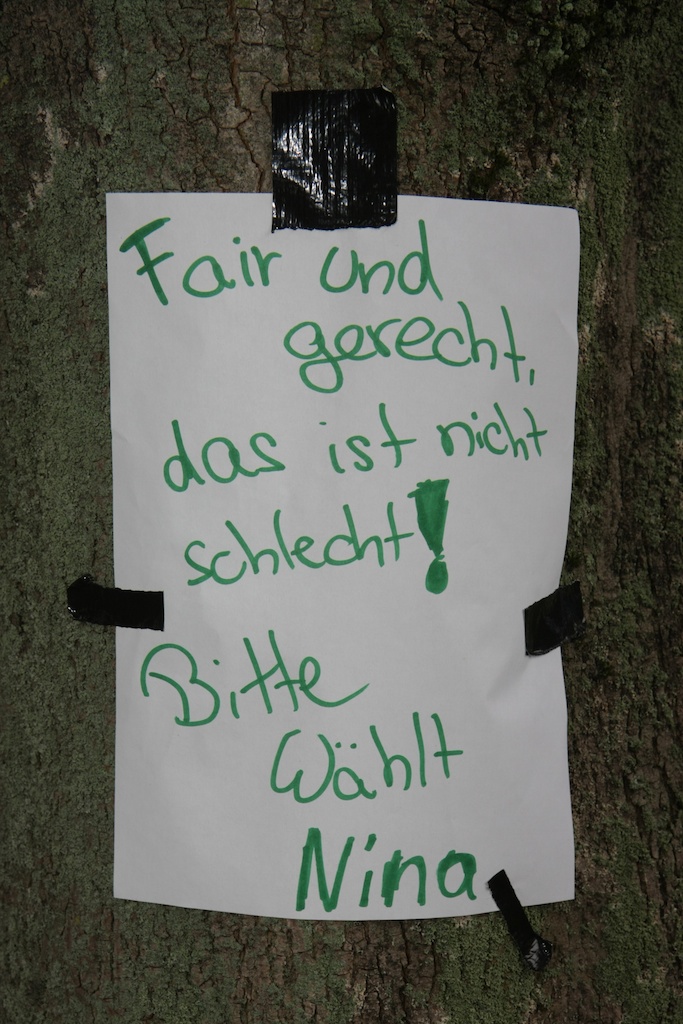 Fair und
gerecht,
das ist nicht
schlecht!
Bitte
Wählt
Nina